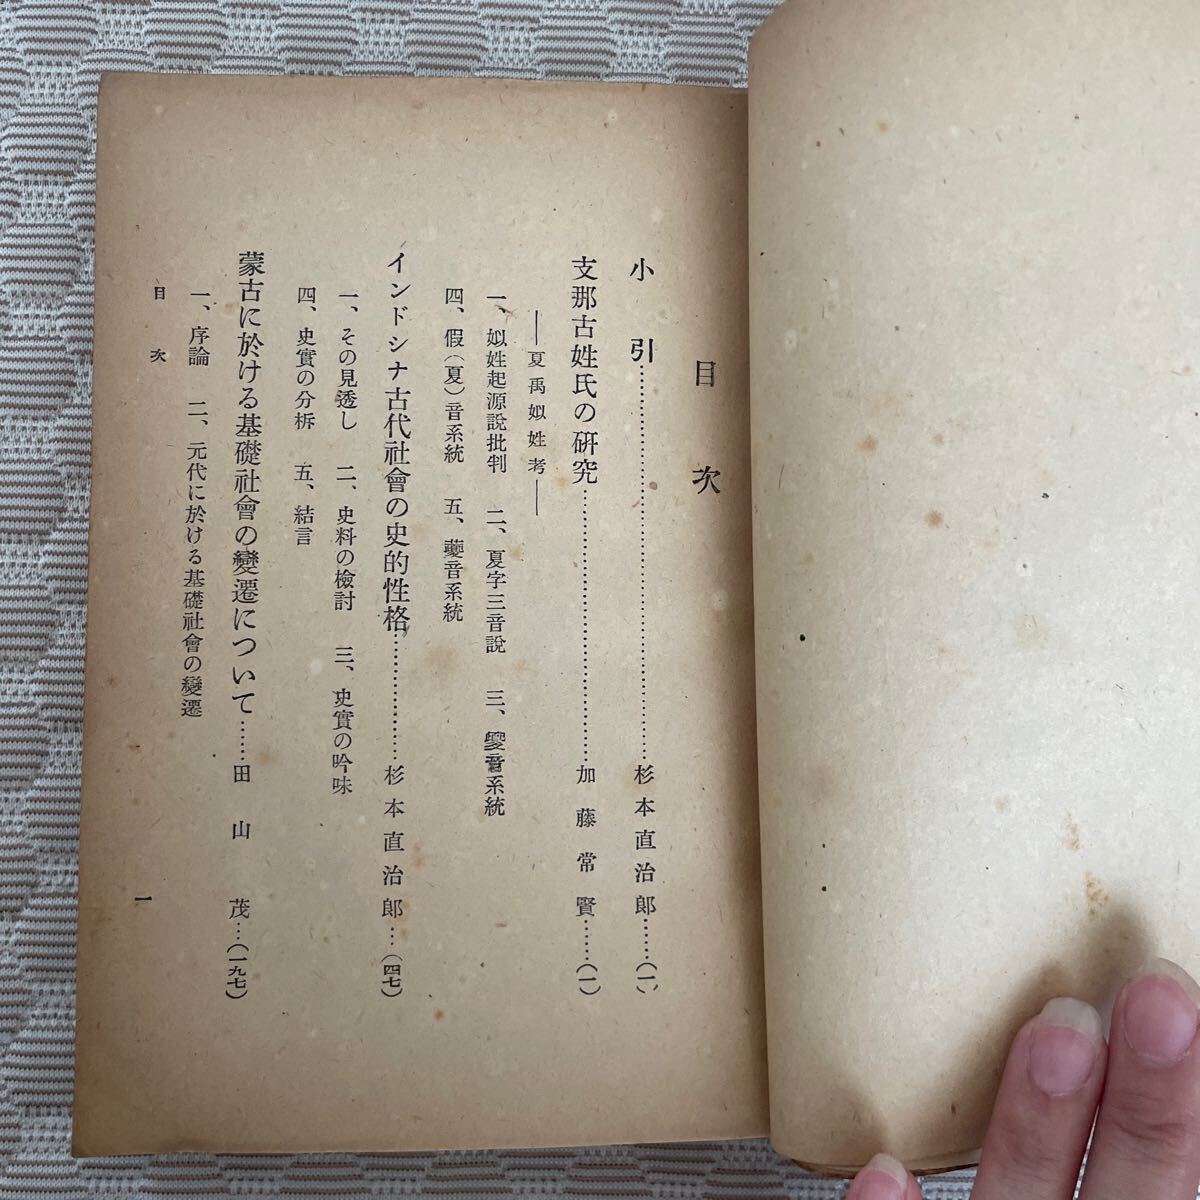 目次
小引……杉本直治郎……(一)
支那古姓氏の硏究……加藤常賢……(一)
――夏禹姒姓考――
一、姒姓起源說批判 二、夏字三音說 三、夒音系統
四、假(夏)音系統 五、夔音系統
インドシナ古代社會の史的性格……杉本直治郎…(四七)
一、その見透し 二、史料の檢討 三、史實の吟味
四、史實の分柝 五、結言
蒙古に於ける基礎社會の變遷について……田山茂…(一九七)
一、序論 二、元代に於ける基礎社會の變遷
目次
一